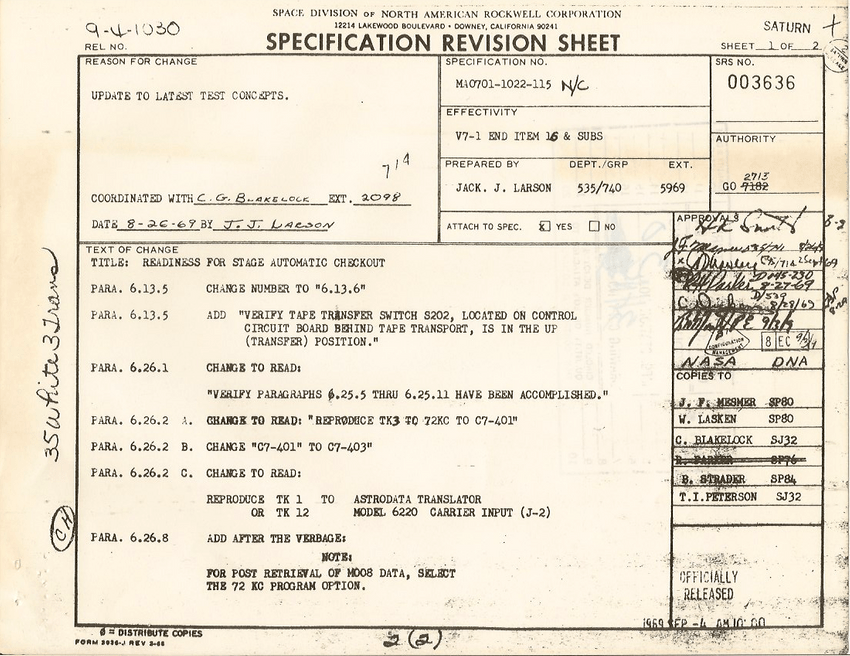 SPACE DIVISION OF NORTH AMERICAN ROCKWELL CORPORATION
12214 LAKEWOOD BOULEVARD • DOWNEY, CALIFORNIA 90241
SPECIFICATION REVISION SHEET
9-4-1030
REL NO.
SATURN
SHEET 1 OF 2
REASON FOR CHANGE
UPDATE TO LATEST TEST CONCEPTS.
COORDINATED WITH C.G. BLAKELOCK EXT. 2098
DATE 8-26-69 BY J. J. LARSON
SPECIFICATION NO.
MA0701-1022-115 N/C
EFFECTIVITY
V7-1 END ITEM 16 & SUBS
PREPARED BY DEPT./GRP EXT.
JACK. J. LARSON 535/740 5969
ATTACH TO SPEC. X YES NO
SRS NO.
003636
AUTHORITY
2713
GO 7182
TEXT OF CHANGE
TITLE: READINESS FOR STAGE AUTOMATIC CHECKOUT
PARA. 6.13.5 CHANGE NUMBER TO "6.13.6"
PARA. 6.13.5 ADD "VERIFY TAPE TRANSFER SWITCH S202, LOCATED ON CONTROL
CIRCUIT BOARD BEHIND TAPE TRANSPORT, IS IN THE UP
(TRANSFER) POSITION."
PARA. 6.26.1 CHANGE TO READ:
"VERIFY PARAGRAPHS 6.25.5 THRU 6.25.11 HAVE BEEN ACCOMPLISHED."
PARA. 6.26.2 A. CHANGE TO READ: "REPRODUCE TK3 TO 72KC TO C7-401"
PARA. 6.26.2 B. CHANGE "C7-401" TO C7-403"
PARA. 6.26.2 C. CHANGE TO READ:
REPRODUCE TK 1 TO ASTRODATA TRANSLATOR
OR TK 12 MODEL 6220 CARRIER INPUT (J-2)
PARA. 6.26.8 ADD AFTER THE VERBAGE:
NOTE:
FOR POST RETRIEVAL OF M008 DATA, SELECT
THE 72 KC PROGRAM OPTION.
APPROVALS
8-27-69
8/28/69
9/3/9
CONFIGURATION
MANAGEMENT
8 EC
NASA DNA
COPIES TO
J. F. MESMER SP80
W. LASKEN SP80
C. BLAKELOCK SJ32
R. PARKER SP76
B. STRADER SP84
T.I.PETERSON SJ32
OFFICIALLY
RELEASED
1969 SEP -4 AM 10
35 White 3 Trans
CH
Ø = DISTRIBUTE COPIES
2 (2)